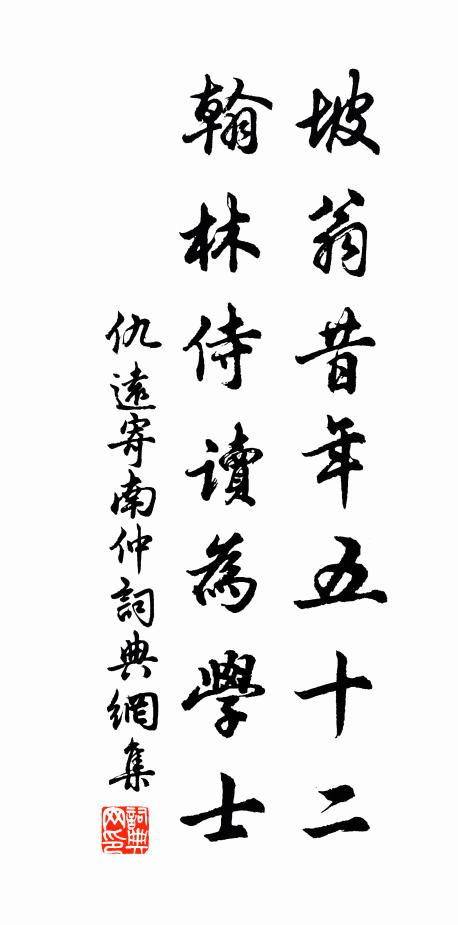 坡翁昔年五十二
翰林侍讀為學士
仇遠寄南仲詞典網集
詞典
网印